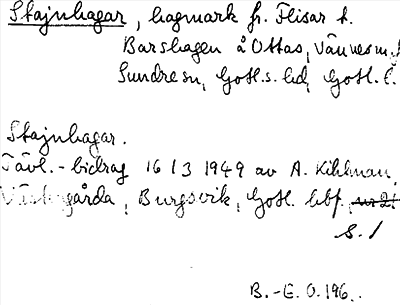 Stajnhagar, hagmark fr. Flisar t.
Barshagen å Ottas, Vännesm.
Sundre sn, Gotl.s. hd, Gotl. l.
Stajnhagar.
Tävl.-bidrag 16/3 1949 av A. Kihlman,
Västergårda, Burgsvik, Gotl. hbf.
S. 1
B.-E. O. 196.